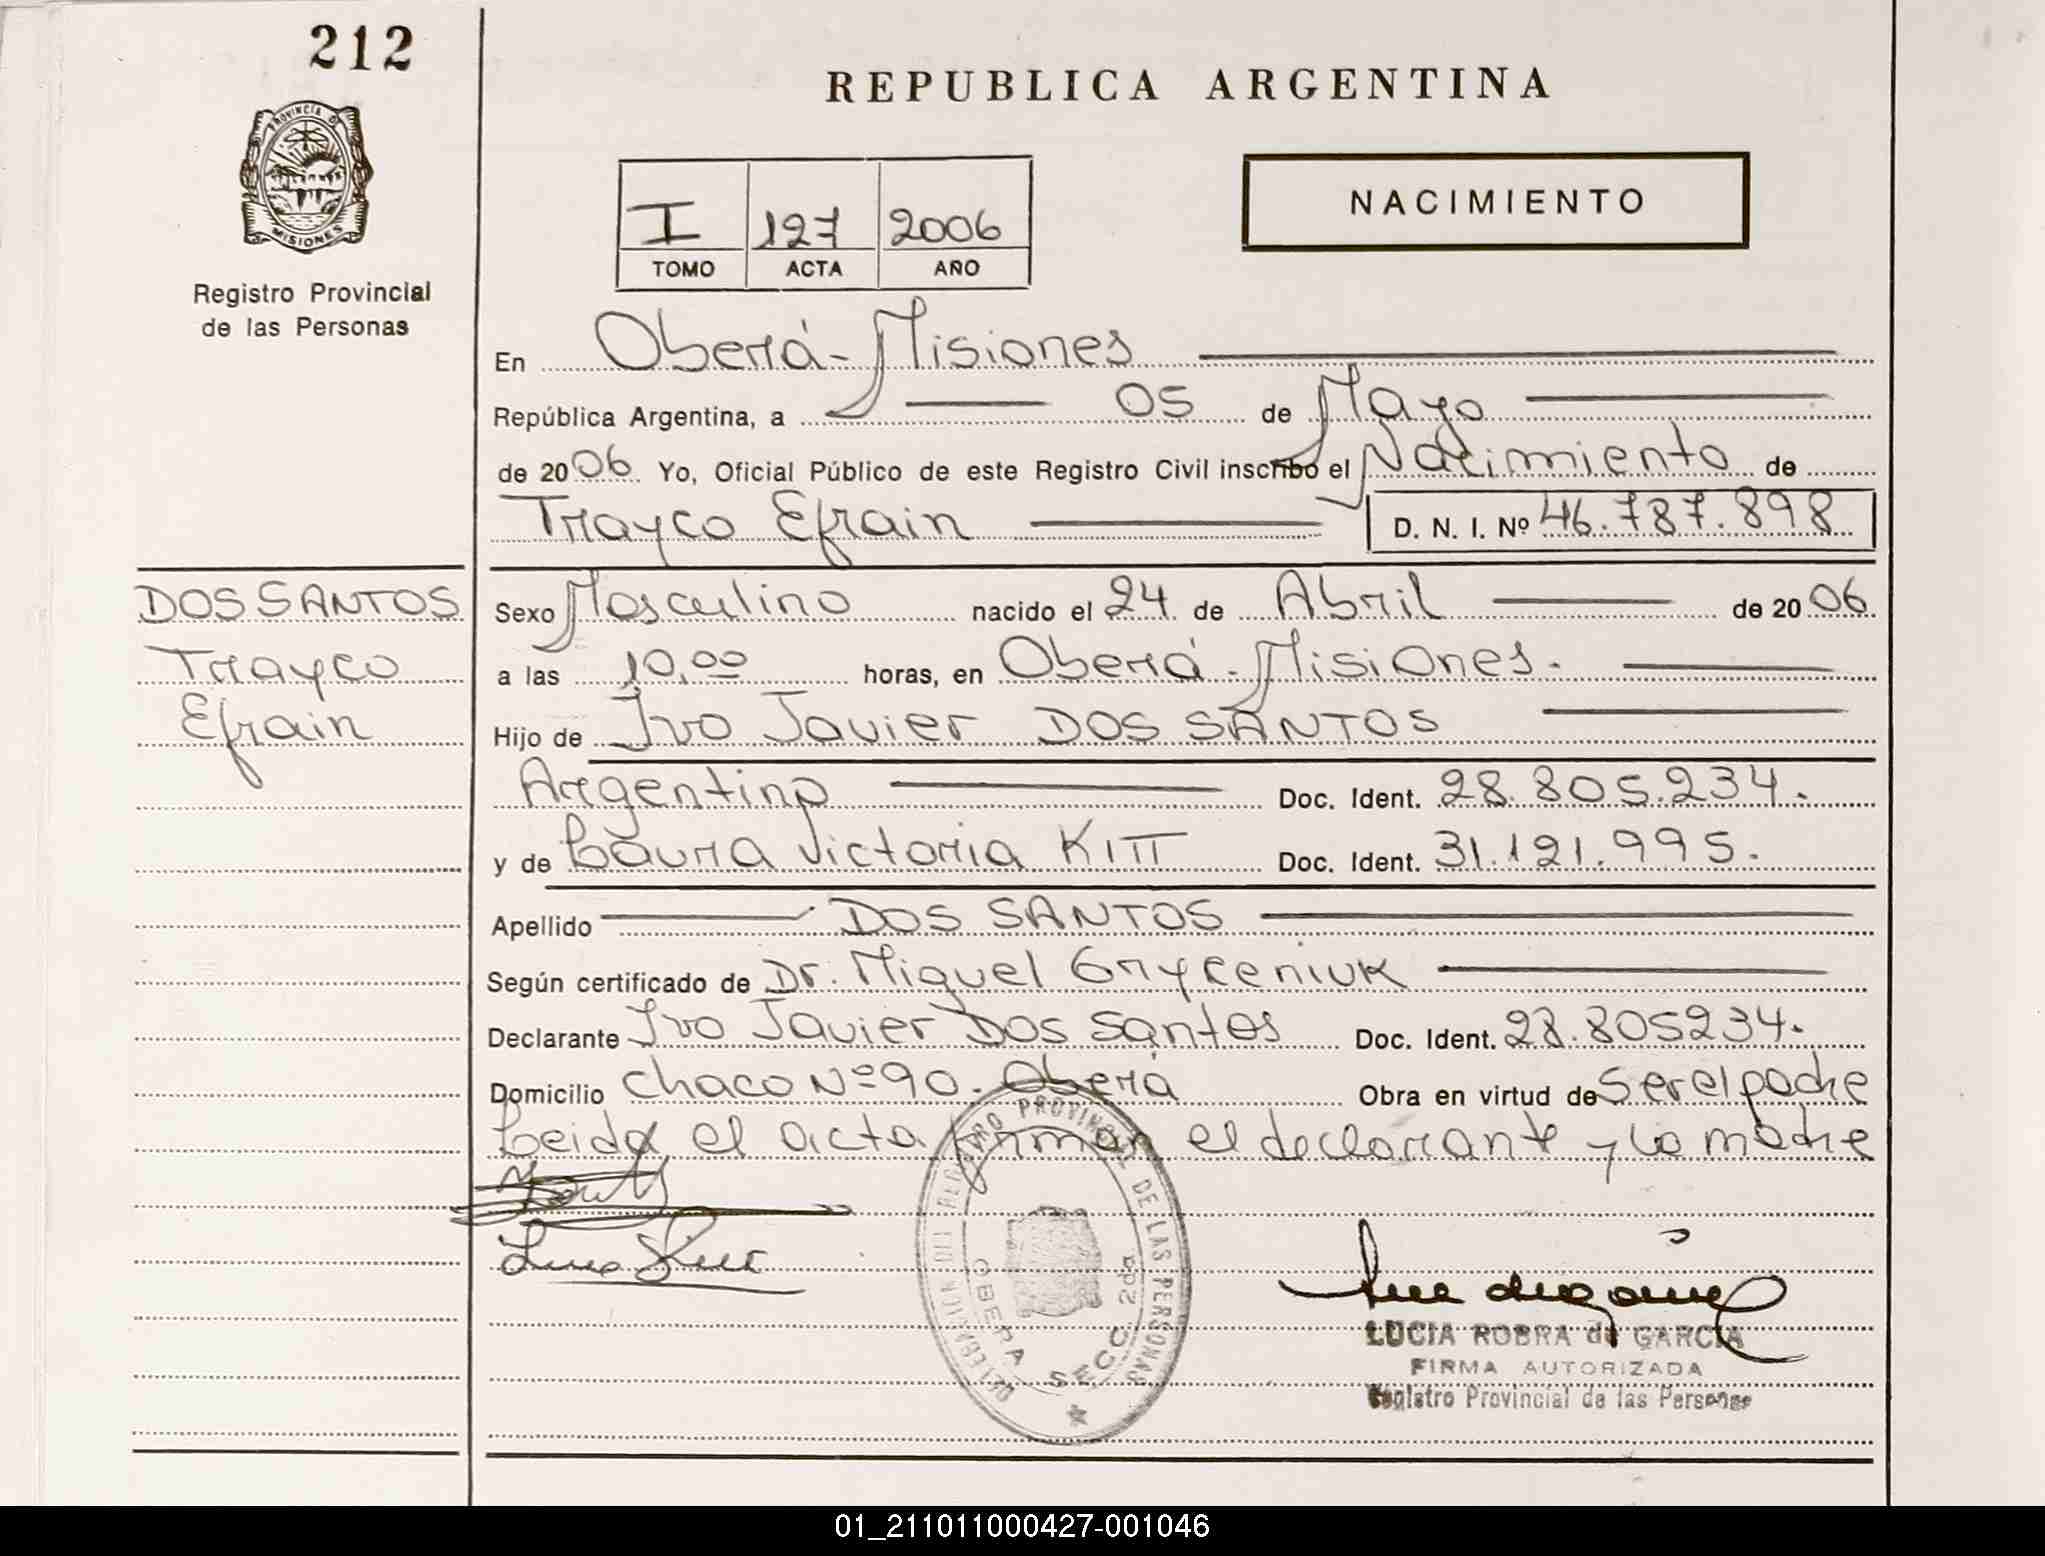 212
PROVINCIA DE
MISIONES
Registro Provincial
de las Personas
REPUBLICA ARGENTINA
I 127 2006
TOMO ACTA AÑO
NACIMIENTO
En Oberá - Misiones
República Argentina, a 05 de Mayo
de 2006 Yo, Oficial Público de este Registro Civil inscribo el Nacimiento de
Trayco Efrain D. N. I. Nº 46.787.898
DOS SANTOS
Trayco
Efrain
Sexo Masculino nacido el 24 de Abril de 2006
a las 10,00 horas, en Oberá - Misiones.
Hijo de Ivo Javier DOS SANTOS
Argentino Doc. Ident. 28.805.234.
y de Laura Victoria KITT Doc. Ident. 31.121.995.
Apellido DOS SANTOS
Según certificado de Dr. Miguel Gryceniuk
Declarante Ivo Javier Dos Santos Doc. Ident. 28.805234.
Domicilio Chaco Nº 90. Oberá Obra en virtud de Ser el padre
Leida el acta firman el declarante y la madre
DELEGACION DEL REGISTRO PROVINCIAL DE LAS PERSONAS
OBERA SECC. 2da
LUCIA ROBRA de GARCIA
FIRMA AUTORIZADA
Registro Provincial de las Personas
01_211011000427-001046